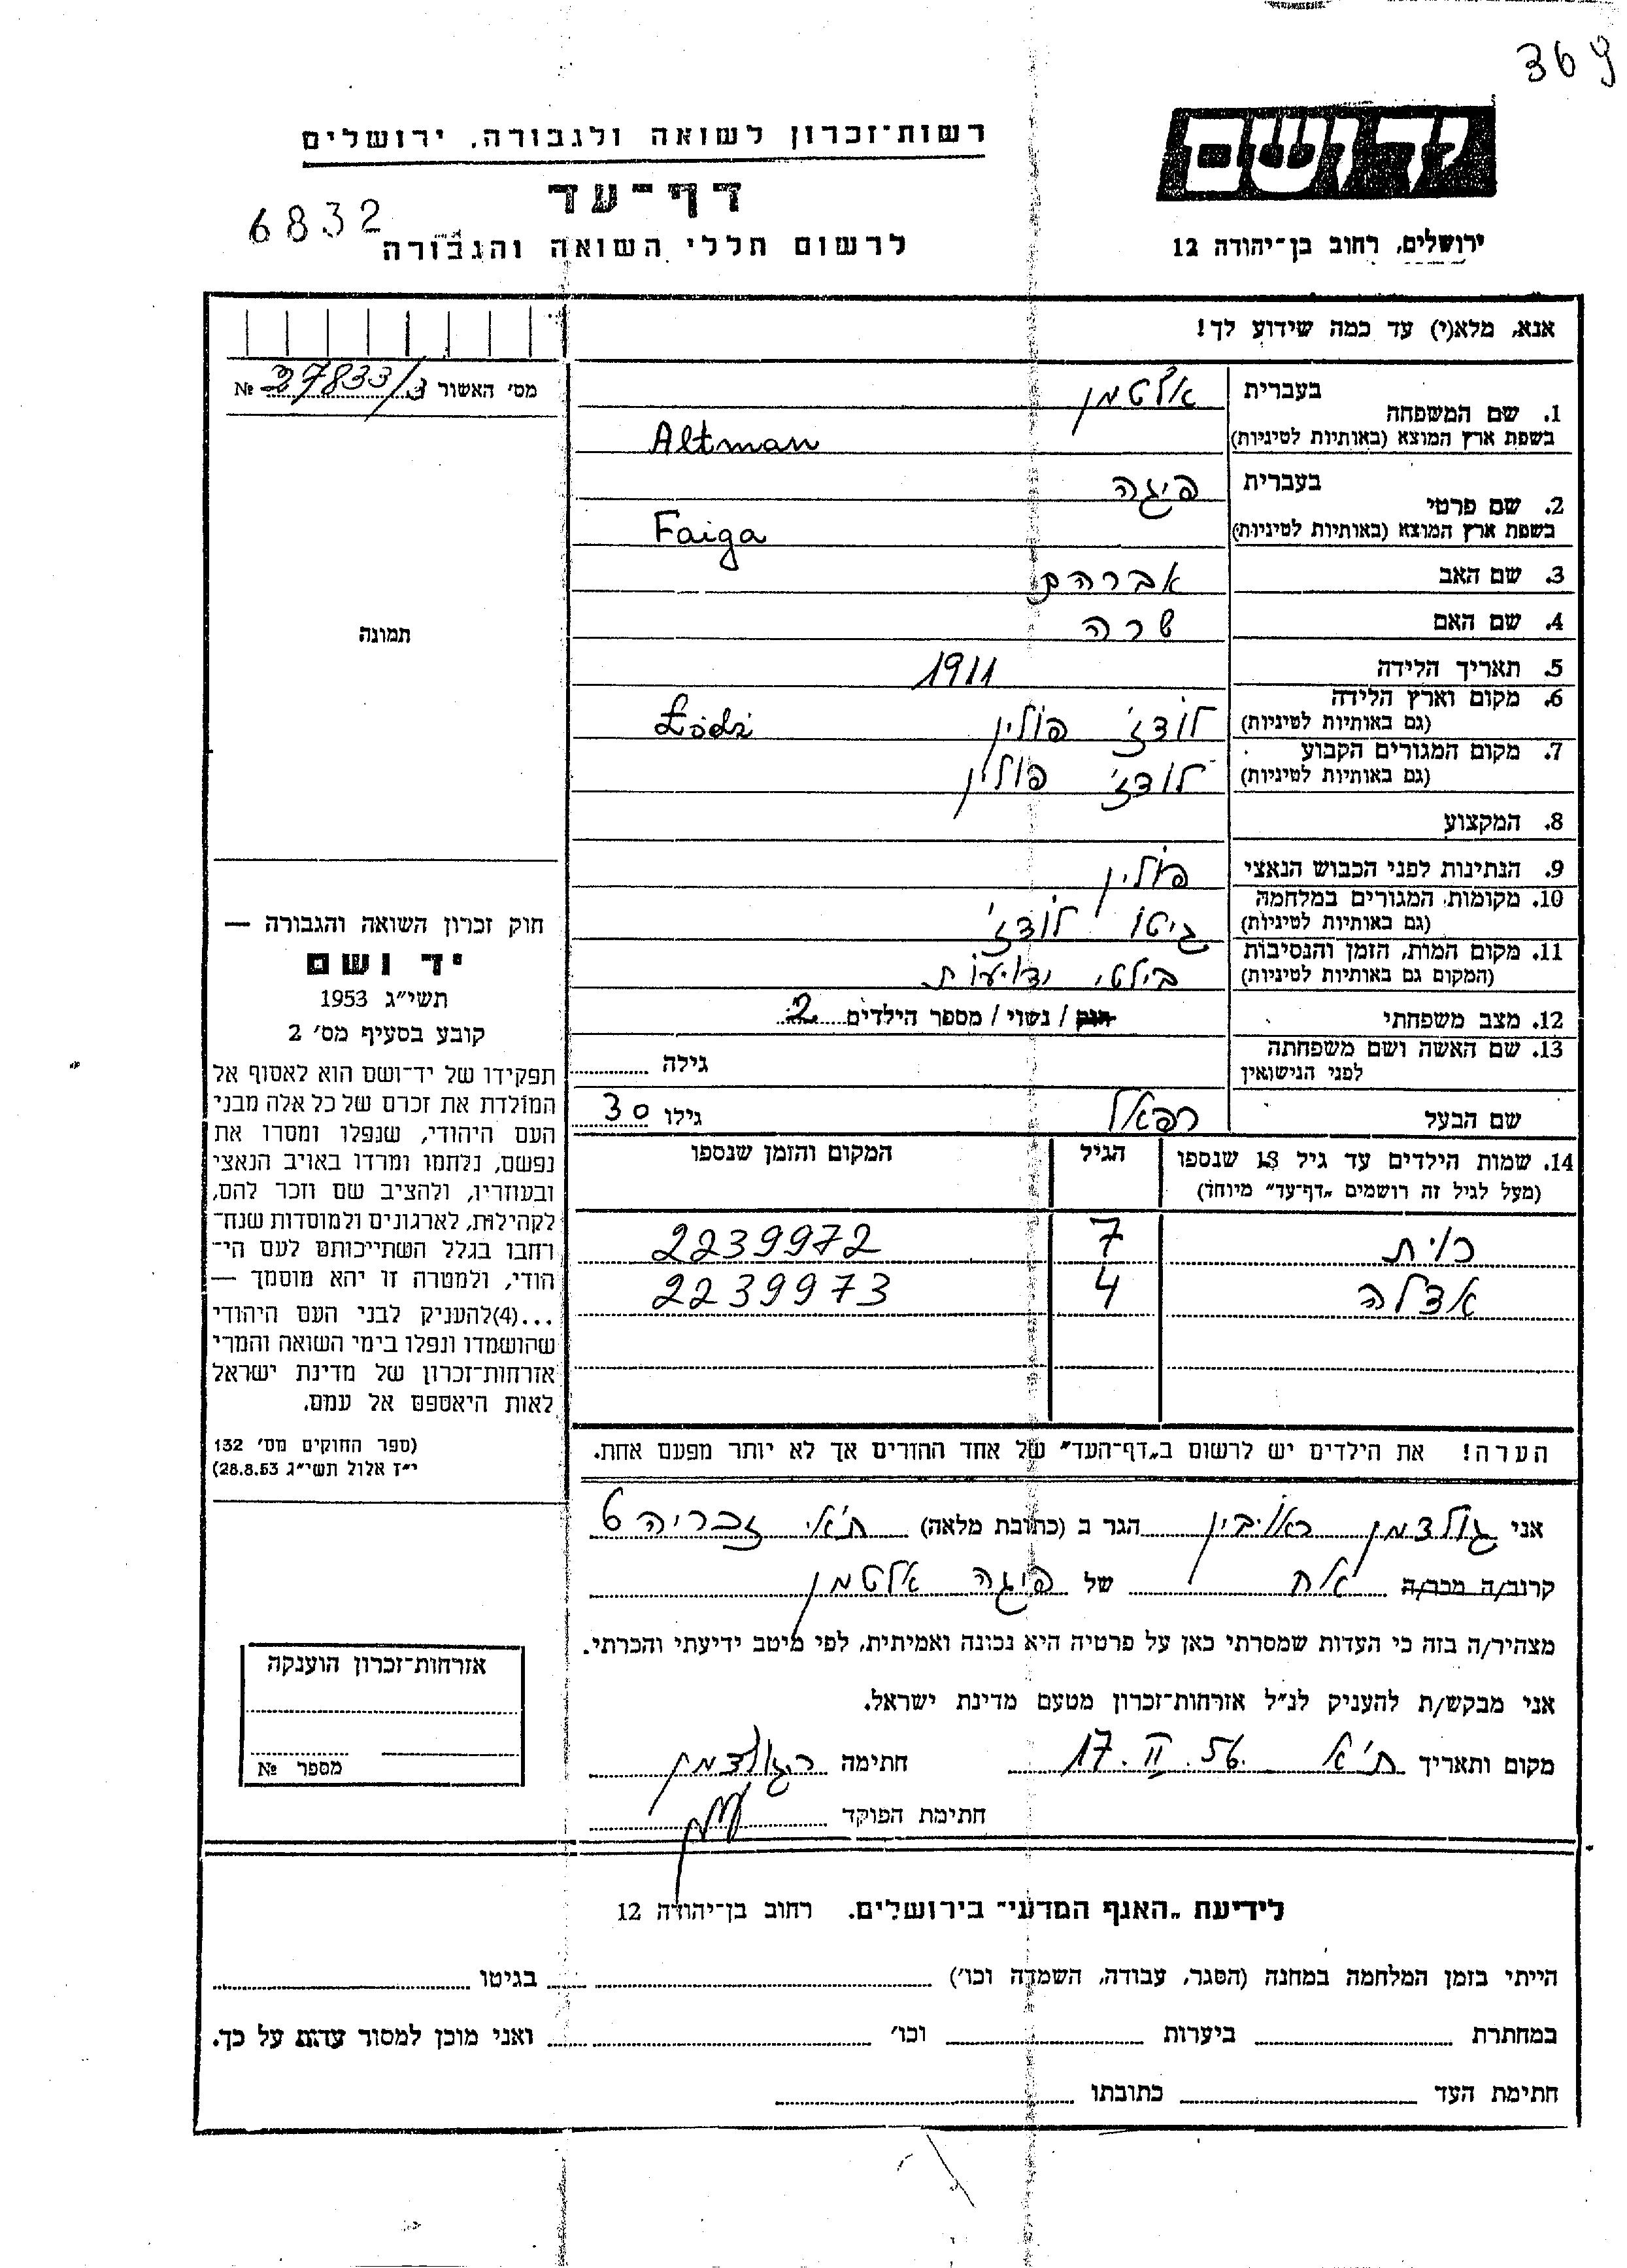 369
ידושם
רשות־זכרון לשואה ולגבורה, ירושלים
דף־עד
6832
לרשום חללי השואה והגבורה
ירושלים, רחוב בן־יהודה 12
אנא, מלא(י) עד כמה שידוע לך!
מס׳ האשור 27833/3 №
בעברית אלטמן
1. שם המשפחה
בשפת ארץ המוצא (באותיות לטיניות) Altman
בעברית פיגה
2. שם פרטי
בשפת ארץ המוצא (באותיות לטיניות) Faiga
3. שם האב אברהם
4. שם האם שרה
5. תאריך הלידה 1911
6. מקום וארץ הלידה
(גם באותיות לטיניות) לודז׳ פולין Łódź
7. מקום המגורים הקבוע
(גם באותיות לטיניות) לודז׳ פולין
8. המקצוע
9. הנתינות לפני הכבוש הנאצי פולין
10. מקומות המגורים במלחמה
(גם באותיות לטיניות) גיטו לודז׳
11. מקום המות, הזמן והנסיבות
(המקום גם באותיות לטיניות) בילתי ידועות
12. מצב משפחתי רווק / נשוי / מספר הילדים 2
13. שם האשה ושם משפחתה
לפני הנישואין גילה
שם הבעל רפאל גילו 30
14. שמות הילדים עד גיל 13 שנספו הגיל המקום והזמן שנספו
(מעל לגיל זה רושמים „דף־עד״ מיוחד)
7 2239972
אדלה 4 2239973
הערה! את הילדים יש לרשום ב„דף־העד״ של אחד ההורים אך לא יותר מפעם אחת.
תמונה
חוק זכרון השואה והגבורה —
יד ושם
תשי״ג 1953
קובע בסעיף מס׳ 2
תפקידו של יד־ושם הוא לאסוף אל
המולדת את זכרם של כל אלה מבני
העם היהודי, שנפלו ומסרו את
נפשם, נלחמו ומרדו באויב הנאצי
ובעוזריו, ולהציב שם וזכר להם,
לקהילות, לארגונים ולמוסדות שנח־
רחבו בגלל השתייכותם לעם הי־
הודי, ולמטרה זו יהא מוסמך —
...(4)להעניק לבני העם היהודי
שהושמדו ונפלו בימי השואה והמרי
אזרחות־זכרון של מדינת ישראל
לאות היאספם אל עמם.
(ספר החוקים מס׳ 132
י״ז אלול תשי״ג 28.8.53)
אני גולדמן ראובין הגר ב (כתובת מלאה) ת״א זכריה 6
קרוב/ה מכר/ה אח של פיגה אלטמן
מצהיר/ה בזה כי העדות שמסרתי כאן על פרטיה היא נכונה ואמיתית, לפי מיטב ידיעתי והכרתי.
אני מבקש/ת להעניק לנ״ל אזרחות־זכרון מטעם מדינת ישראל.
מקום ותאריך ת״א 17.II.56 חתימה ר גולדמן
חתימת הפוקד
אזרחות־זכרון הוענקה
מספר №
לידיעת „האגף המדעי״ בירושלים. רחוב בן־יהודה 12
הייתי בזמן המלחמה במחנה (הסגר, עבודה, השמדה וכו׳) בגיטו
במחתרת ביערות וכו׳ ואני מוכן למסור עדות על כך.
חתימת העד כתובתו